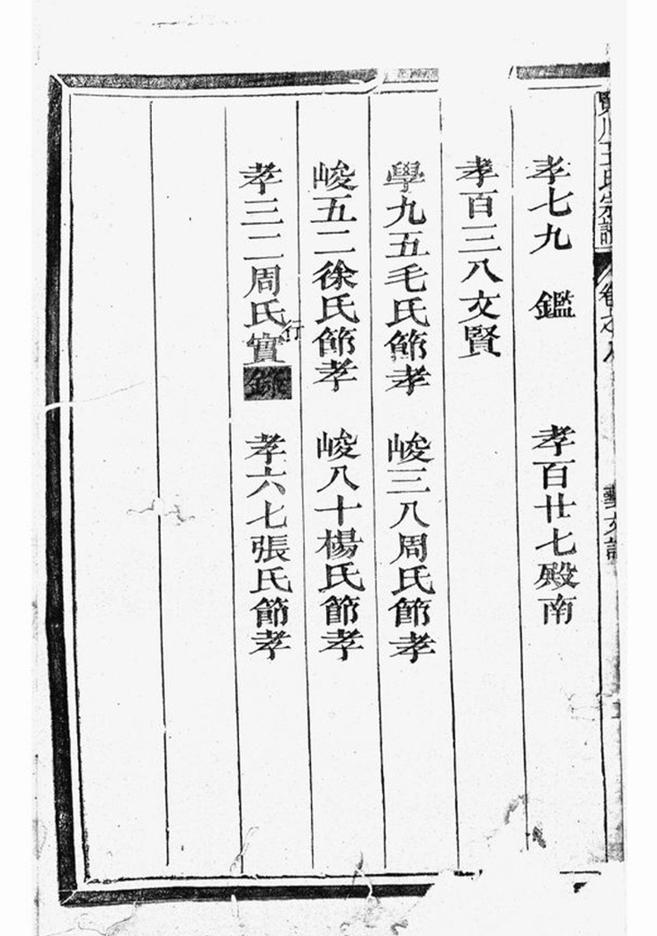 王氏宗譜 卷之八 藝文譜
孝七九 鑑 孝百廿七殿南
孝百三八文賢
學九五毛氏節孝 峻三八周氏節孝
峻五二徐氏節孝 峻八十楊氏節孝
孝三二周氏實行錄 孝六七張氏節孝